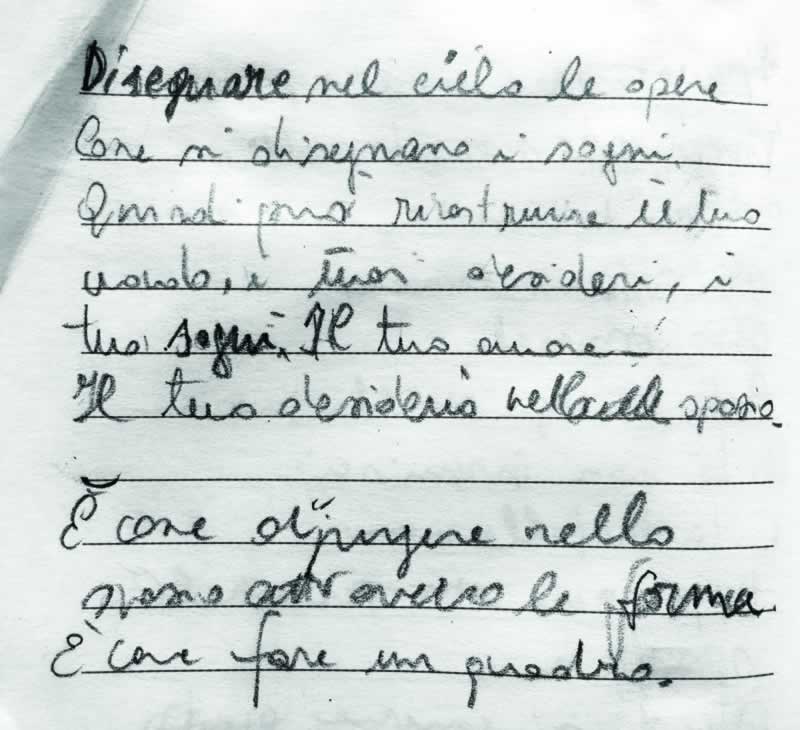 Disegnare nel cielo le opere
Come si disegnano i sogni.
Quindi puoi ricostruire il tuo
mondo, i tuoi desideri, i
tuoi sogni. Il tuo amore
Il tuo desiderio nello spazio.
È come dipingere nello
spazio attraverso le forma
È come fare un quadro.